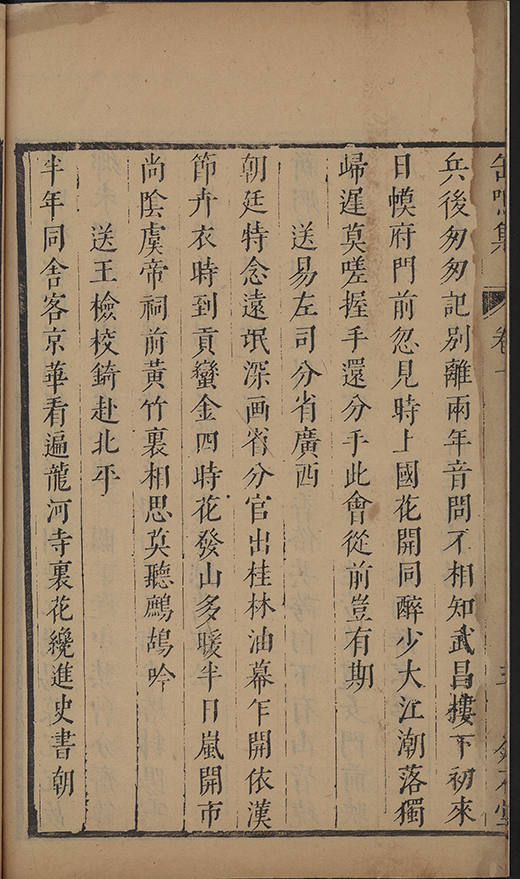 缶鳴集
卷十
兵後匆匆記别離兩年音問不相知武昌樓下初來
日幙府門前忽見時上國花開同醉少大江潮落獨
歸遲莫嗟握手還分手此會從前豈有期
送易左司分省廣西
朝廷特念遠氓深画省分官出桂林油幕乍開依漢
節卉衣時到貢蠻金四時花發山多暖半日嵐開市
尚陰虞帝祠前黃竹裏相思莫聽鷓鴣吟
送王檢校錡赴北平
半年同舍客京華看遍龍河寺裏花纔進史書朝